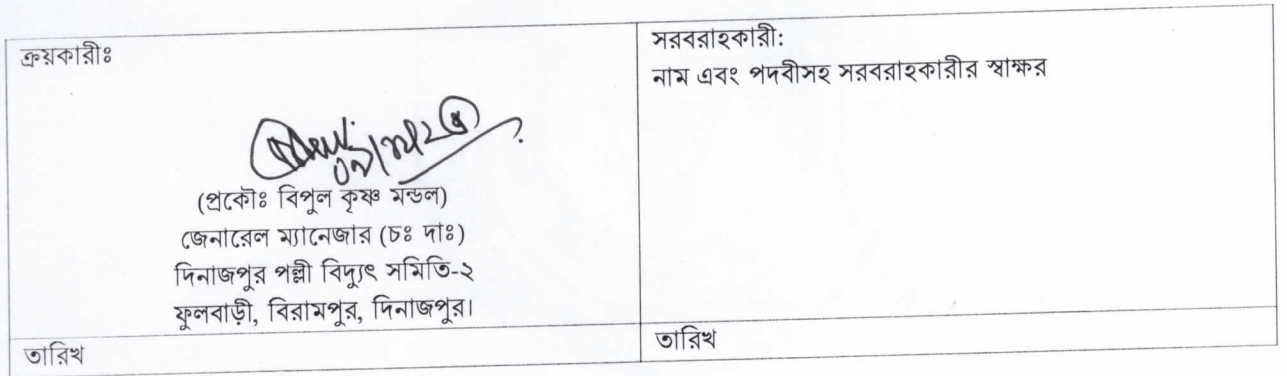 ক্রয়কারীঃ
(প্রকৌঃ বিপুল কৃষ্ণ মন্ডল)
জেনারেল ম্যানেজার (চঃ দাঃ)
দিনাজপুর পল্লী বিদ্যুৎ সমিতি-২
ফুলবাড়ী, বিরামপুর, দিনাজপুর।
তারিখ
সরবরাহকারী:
নাম এবং পদবীসহ সরবরাহকারীর স্বাক্ষর
তারিখ